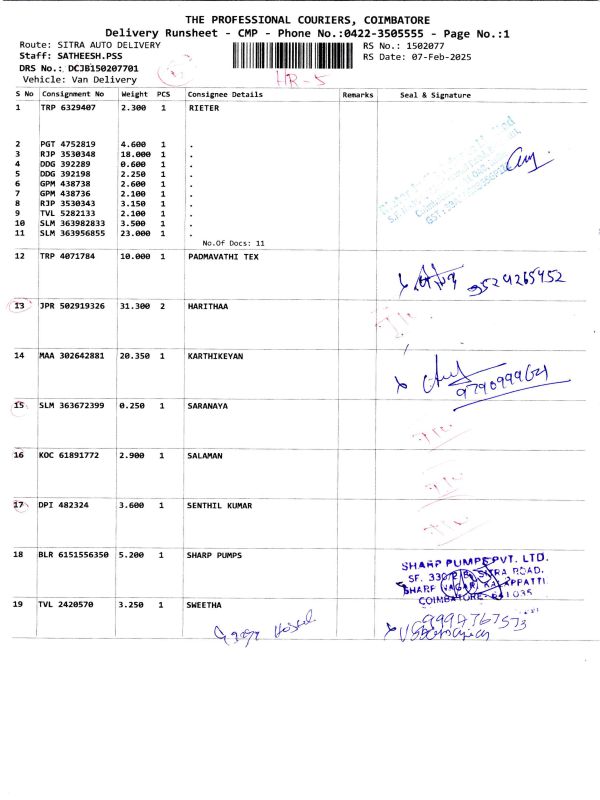 THE PROFESSIONAL COURIERS, COIMBATORE
Delivery Runsheet - CMP - Phone No.:0422-3505555 - Page No.:1
Route: SITRA AUTO DELIVERY
RS No.: 1502077
Staff: SATHEESH.PSS
RS Date: 07-Feb-2025
DRS No.: DCJB150207701
Vehicle: Van Delivery
HR-5
S No Consignment No Weight PCS Consignee Details Remarks Seal & Signature
1 TRP 6329407 2.300 1 RIETER
2 PGT 4752819 4.600 1 .
3 RJP 3530348 18.000 1 .
4 DDG 392289 0.600 1 .
5 DDG 392198 2.250 1 .
6 GPM 438738 2.600 1 .
7 GPM 438736 2.100 1 .
8 RJP 3530343 3.150 1 .
9 TVL 5282133 2.100 1 .
10 SLM 363982833 3.500 1 .
11 SLM 363956855 23.000 1 .
No.Of Docs: 11
12 TRP 4071784 10.000 1 PADMAVATHI TEX
9524265452
13 JPR 502919326 31.300 2 HARITHAA
14 MAA 302642881 20.350 1 KARTHIKEYAN
15 SLM 363672399 0.250 1 SARANAYA
16 KOC 61891772 2.900 1 SALAMAN
17 DPI 482324 3.600 1 SENTHIL KUMAR
18 BLR 6151556350 5.200 1 SHARP PUMPS
SHARP PUMPS PVT. LTD.
SF. 330/2 SITRA ROAD,
SHARP NAGAR, KALAPPATTI
COIMBATORE- 641035
19 TVL 2420570 3.250 1 SWEETHA
9994767573